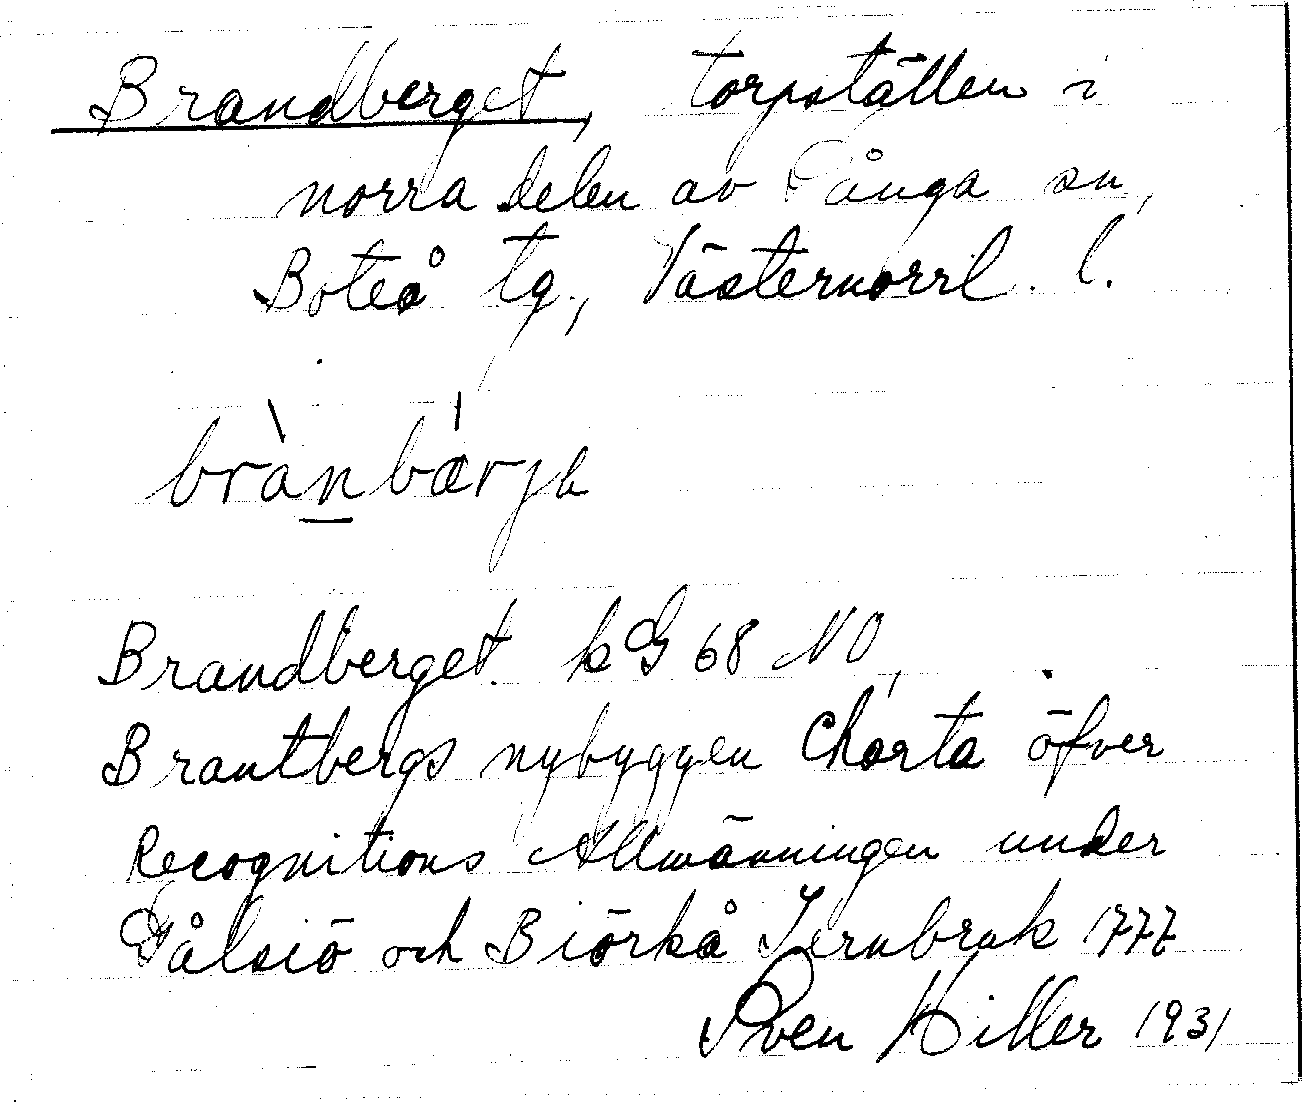 Brandberget, torpställen i
norra delen av Sånga sn,
Boteå tg., Västernorrl. l.
brànbærja
Brandberget. kG 68 NO,
Brantbergs nybyggen Charta öfver
Recognitions Allmänningen under
Gålsiö och Biörkå Jernbruk 1777
Sven Hiller 1931